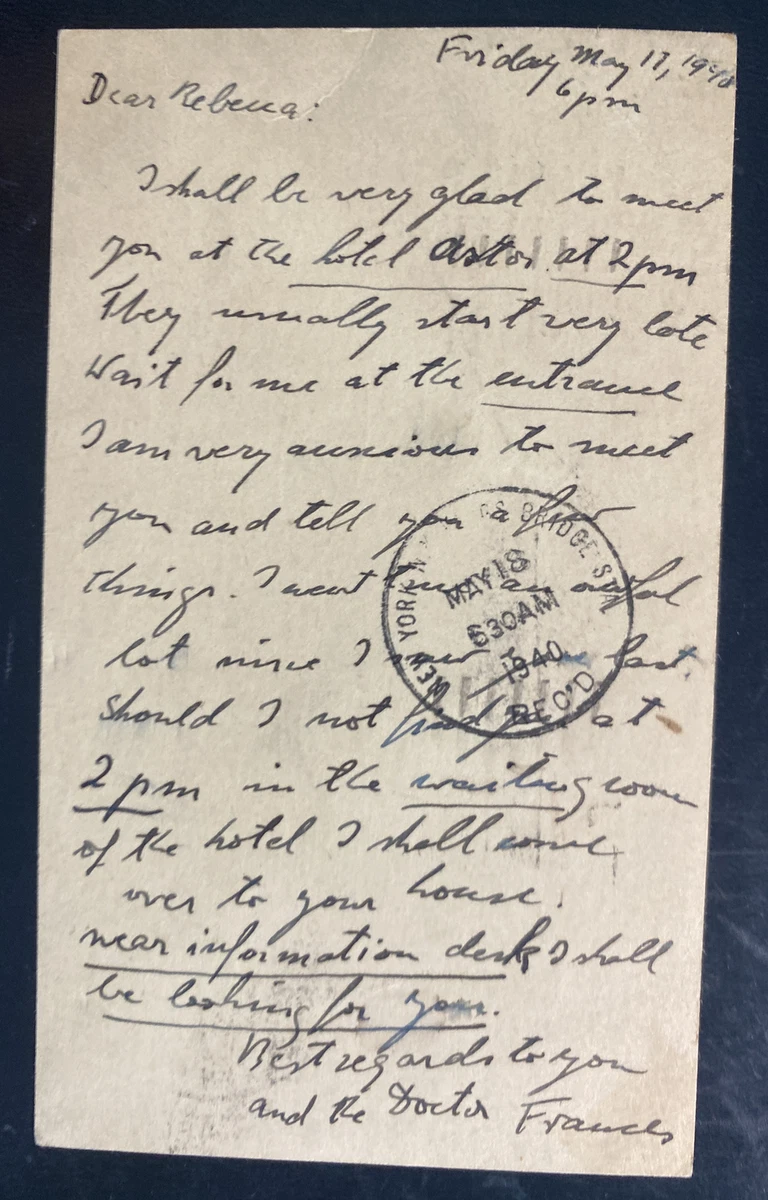 Friday May 17, 1940
6 pm
Dear Rebecca:
I shall be very glad to meet
you at the hotel Astor at 2 pm
They usually start very late
Wait for me at the entrance
I am very anxious to meet
you and tell you a few
things. I went thru an awful
lot since I saw you last.
Should I not find you at
2 pm in the waiting room
of the hotel I shall come
over to your house.
near information desk I shall
be looking for you.
Best regards to you
and the Doctor Frances
NEW YORK N.Y. BRIDGE STA.
MAY 18
630AM
1940
REC'D